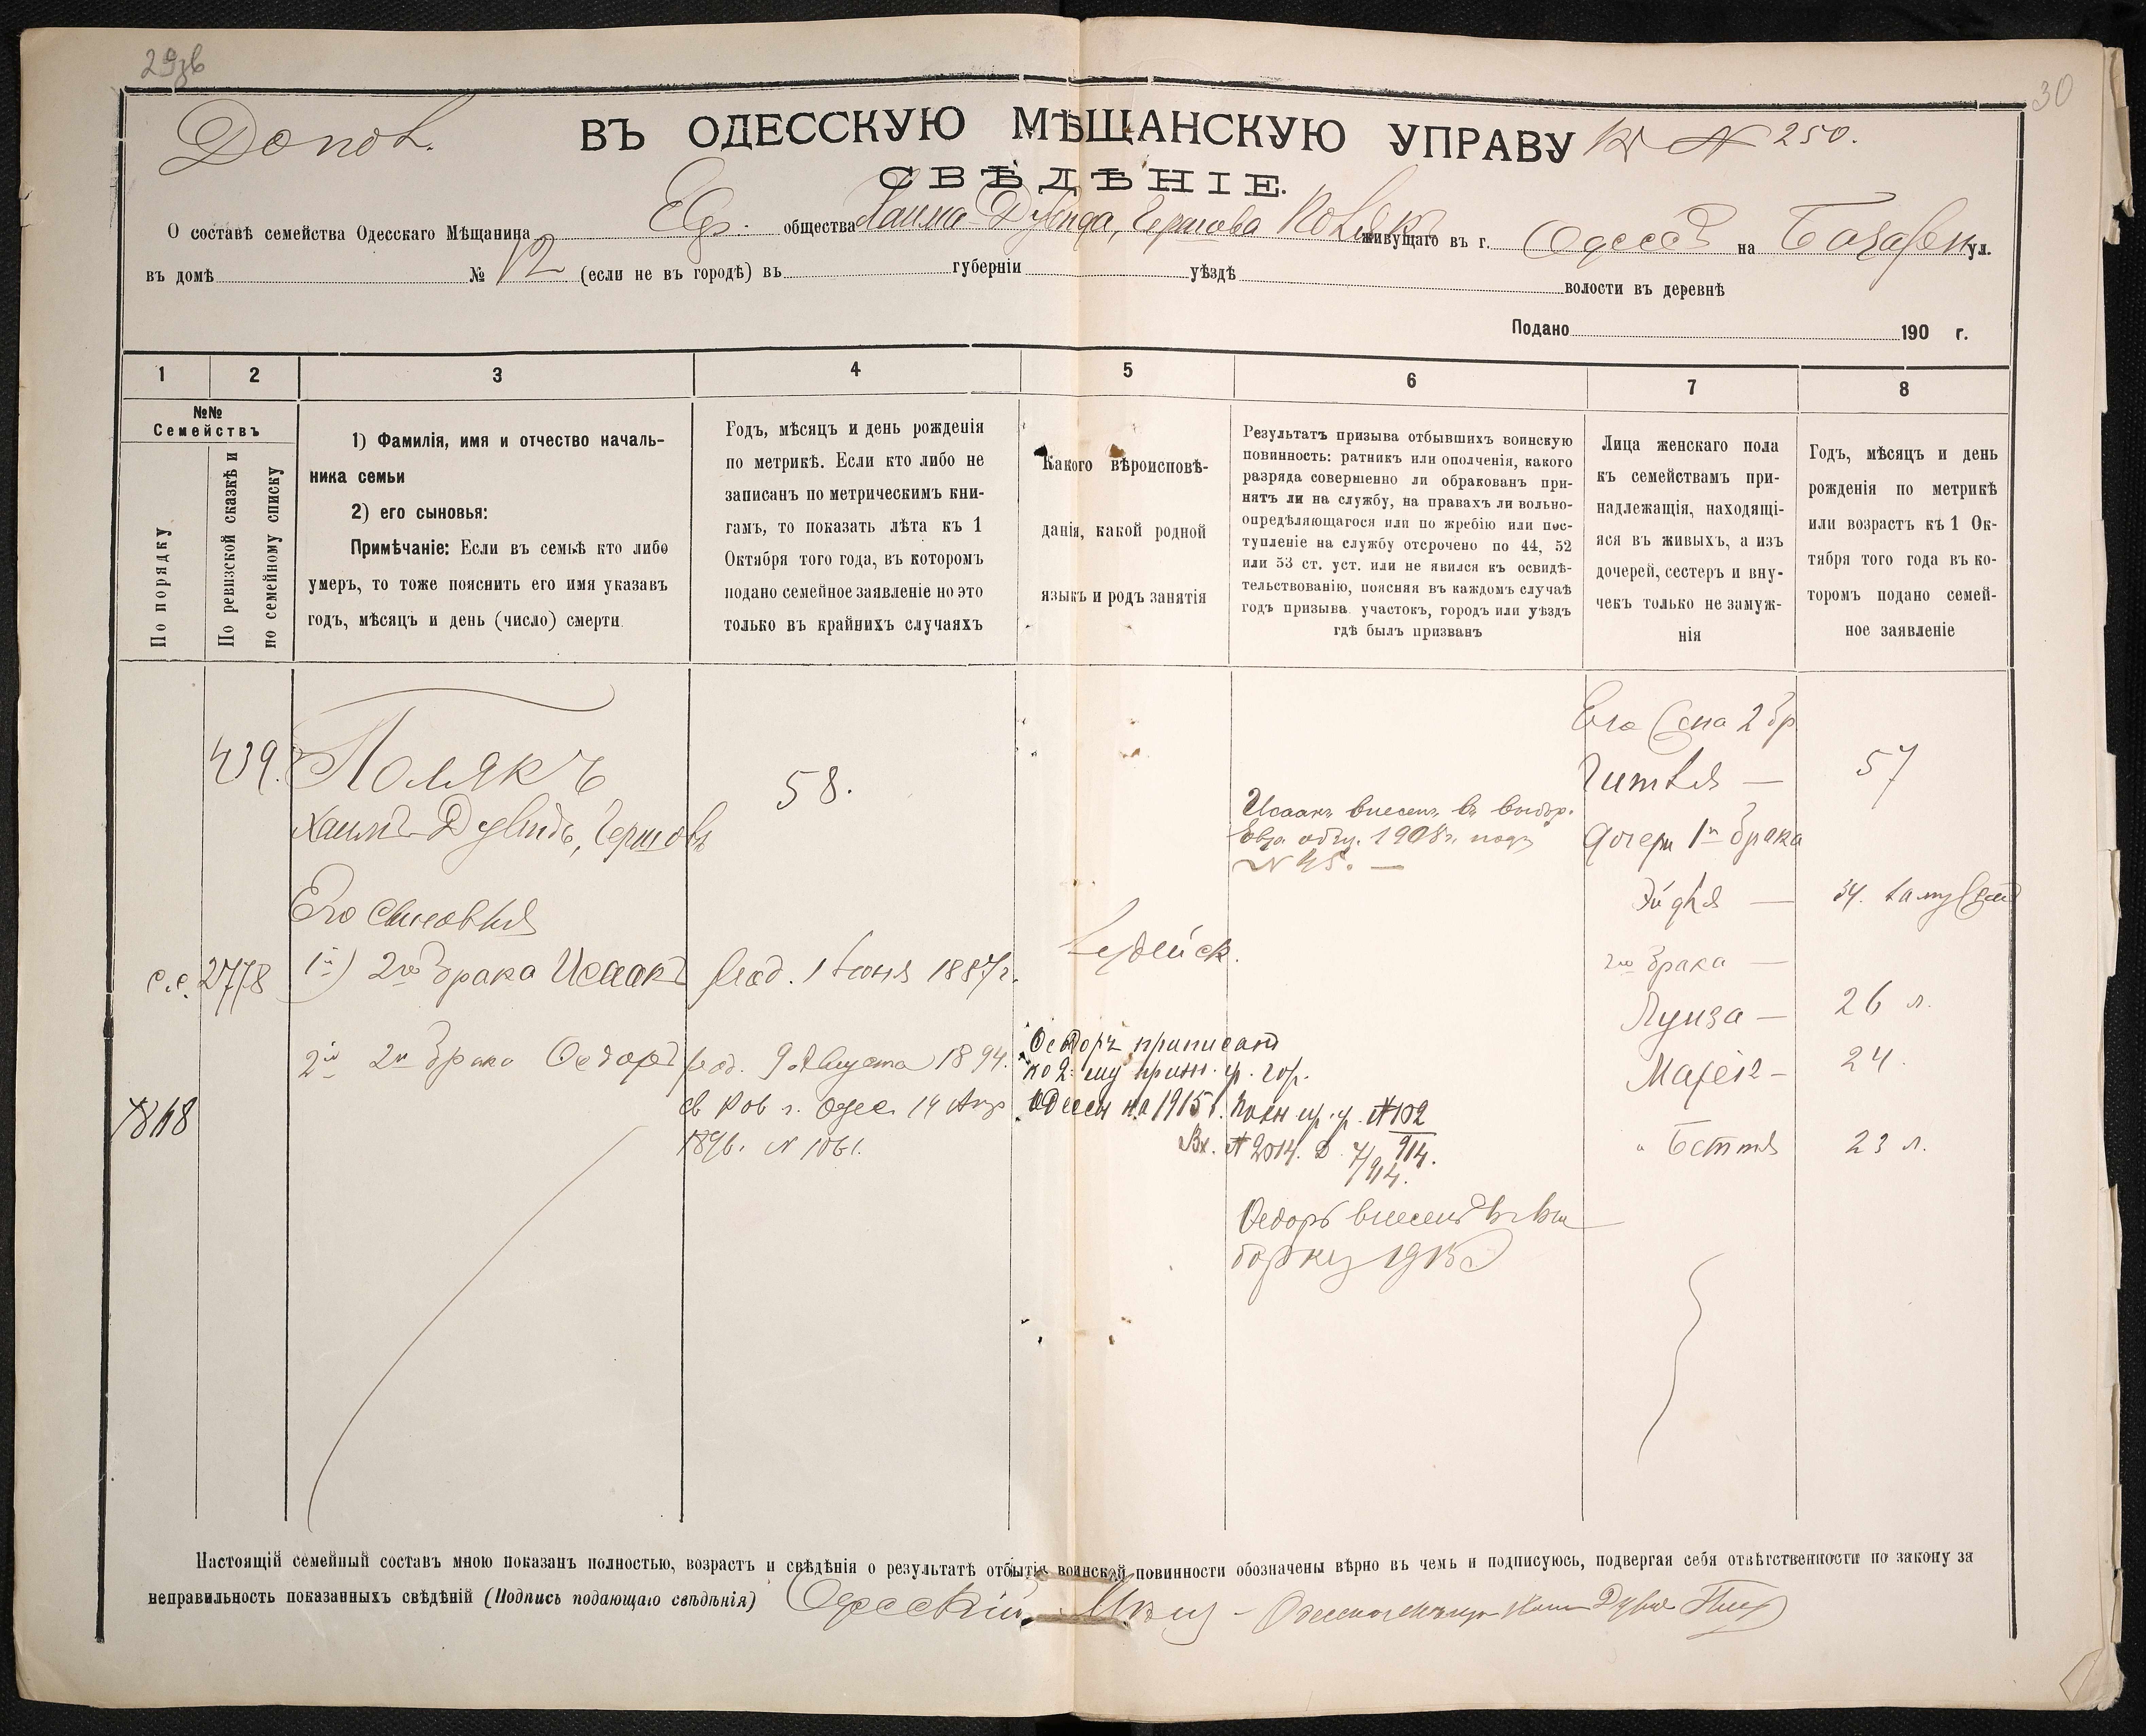 29зв
30
Допол.
ВЪ ОДЕССКУЮ МѢЩАНСКУЮ УПРАВУ
К № 250.
СВѢДѢНІЕ.
О составѣ семейства Одесскаго Мѣщанина Евр. общества Хаима-Дувида, Гершова Полякъ живущаго въ г. Одессѣ на Базарн ул.
въ домѣ № 12 (если не въ городѣ) въ губерніи уѣздѣ волости въ деревнѣ
Подано 190 г.
1 2 3 4 5 6 7 8
№№
Семействъ
По порядку
По ревизской сказкѣ и
по семейному списку
1) Фамилія, имя и отчество началь-
ника семьи
2) его сыновья:
Примѣчаніе: Если въ семьѣ кто либо
умеръ, то тоже пояснить его имя указавъ
годъ, мѣсяцъ и день (число) смерти
Годъ, мѣсяцъ и день рожденія
по метрикѣ. Если кто либо не
записанъ по метрическимъ кни-
гамъ, то показать лѣта къ 1
Октября того года, въ которомъ
подано семейное заявленіе но это
только въ крайнихъ случаяхъ
Какого вѣроисповѣ-
данія, какой родной
языкъ и родъ занятія
Результатъ призыва отбывшихъ воинскую
повинность: ратникъ или ополченія, какого
разряда совершенно ли обракованъ при-
нятъ ли на службу, на правахъ ли вольно-
опредѣляющагося или по жребію или пос-
тупленіе на службу отсрочено по 44, 52
или 53 ст. уст. или не явился къ освидѣ-
тельствованію, поясняя въ каждомъ случаѣ
годъ призыва участокъ, городъ или уѣздъ
гдѣ былъ призванъ
Лица женскаго пола
къ семействамъ при-
надлежащія, находящі-
яся въ живыхъ, а изъ
дочерей, сестеръ и вну-
чекъ только не замуж-
нія
Годъ, мѣсяцъ и день
рожденія по метрикѣ
или возрастъ къ 1 Ок-
тября того года въ ко-
торомъ подано семей-
ное заявленіе
439. Полякъ
Хаимъ-Дувидъ, Гершовъ
58.
Его сыновья
с.с. 2778 1й) 2го брака Исаакъ
род. 1 Іюня 1887 г.
2й 2го брака Ѳедоръ
род. 9 Августа 1894.
г. Одес. 14 Апр
1896. № 1061.
1868
Іудейск.
Ѳедоръ приписанъ
по 2му приз. уч. гор.
Одессы на 1915 г. № 102
Вх. № 2014. 7/914.
914.
Исаакъ внесенъ въ выбор.
Евр. общ. 1908 г. подъ
№ 45. —
Ѳедоръ внесенъ въ вы
борку 1915
Его жена 2 бр
Гитля — 57
дочери 1го брака
Эйдля — 34. замужем
2го брака —
Луиза — 26 л.
Марія — 24.
" Бетти 23 л.
Настоящій семейный составъ мною показанъ полностью, возрастъ и свѣдѣнія о результатѣ отбытія воинской повинности обозначены вѣрно въ чемъ и подписуюсь, подвергая себя отвѣтственности по закону за
неправильность показанныхъ свѣдѣній (Подпись подающаго свѣдѣнія) Одесскій